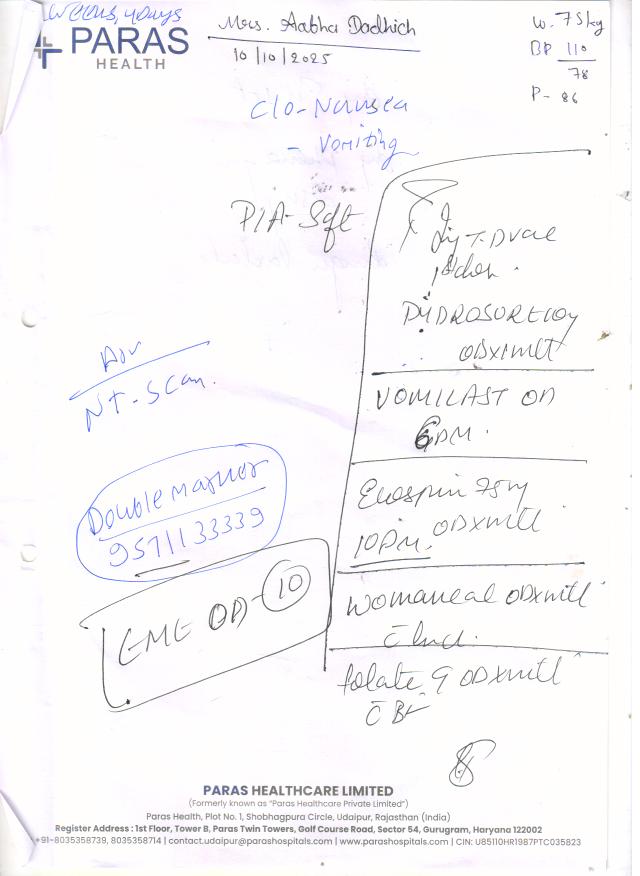 weeks, 4days
PARAS
HEALTH
Mrs. Aabha Dadhich
10/10/2025
W. 75kg
BP 110
78
P- 86
C/o- Nausea
- Vomiting
P/A- Soft
Inj T. Dvac
HYDROSURE 100y
ODxmlt
VOMILAST OD
6PM.
Adv
NT-Scan.
Ecospin 75mg
ODxmlt
10PM.
Double marker
9571133339
EME OD-10
ODxmlt
c lunch.
folate 9 ODxmlt
c BF
PARAS HEALTHCARE LIMITED
(Formerly known as "Paras Healthcare Private Limited")
Paras Health, Plot No. 1, Shobhagpura Circle, Udaipur, Rajasthan (India)
Register Address : 1st Floor, Tower B, Paras Twin Towers, Golf Course Road, Sector 54, Gurugram, Haryana 122002
+91-8035358739, 8035358714 | contact.udaipur@parashospitals.com | www.parashospitals.com | CIN: U85110HR1987PTC035823